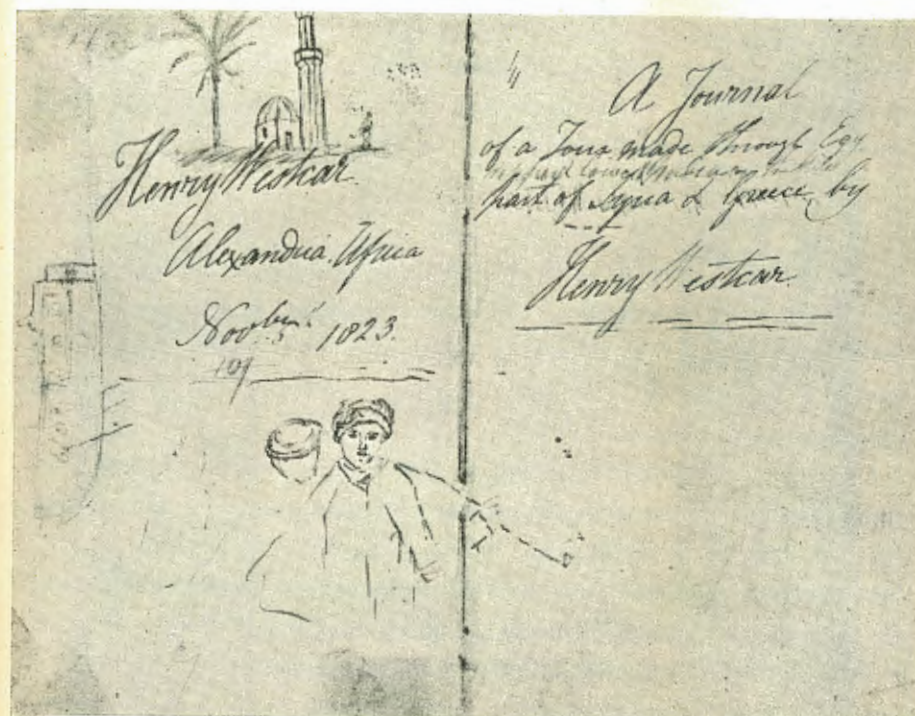 Henry Westcar
Alexandria. Africa
Novber 1823.
A Journal
of a Tour made through Egy
part of Syria & Greece, by
Henry Westcar.